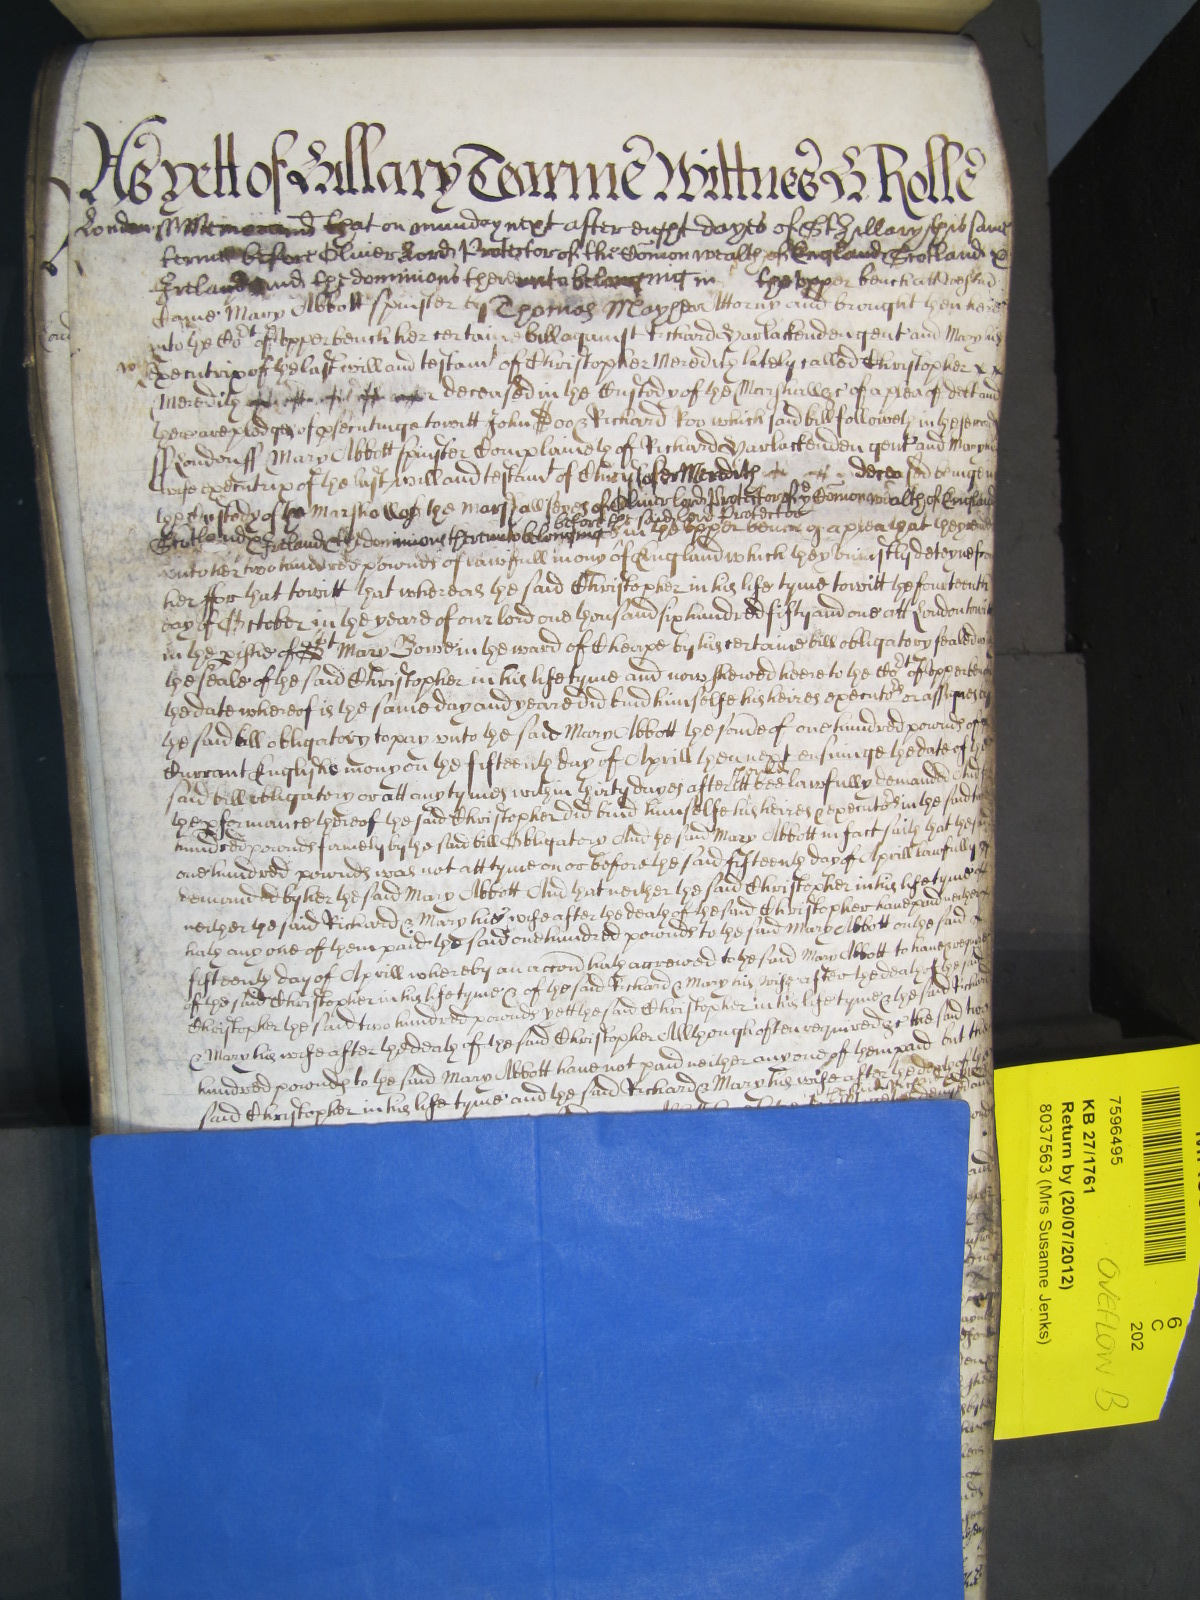 As yett of Hillary Tearme Wittnes H Rolle
London ss Memorand that on munday next after eight dayes of St Hillary this same
terme before Oliver Lord Protector of the Comon wealth of England Scotland &
Ireland and the dominions thereunto belonging in the upper bench att Westm
Came Mary Abbott spinster by Thomas Mayhew Attorny and brought then here
into the Cort of upper bench her certaine bill against Richard Harlackenden gent and Mary his
wife Executrix of the last will and testamt of Christopher Meredith lately called Christopher
Meredith deceased in the Custody of the Marshall &c of a plea of debt and
there are pledges of prsecutinge towitt John Doo & Richard Roo which said bill followeth in these words
ss London ss Mary Abbott spinster Complaineth of Richard Harlackenden gent and Mary his
wife executrix of the last will and testamt of Christofer Meredith deceased being in
the Custody of the Marshall of the Marshallseyes of Oliver Lord Protector of ye Comon wealth of England
before the said Lord Protector
Scotland & Ireland & the dominions thereunto belonging in the upper bench of a plea that they render
unto her two hundred pounds of lawfull mony of England which they uniustly deteyne from
her for that towitt that whereas the said Christopher in his life tyme towitt the fourteenth
day of October in the yeare of our lord one thousand six hundred fifty and one att London towitt
in the prishe of St Mary Bowe in the ward of Cheape by his certaine bill obligatory sealed with
the seale of the said Christopher in his life tyme and now shewed heere to the Cort of upper bench
the date whereof is the same day and yeare did bind himselfe his heires executrs or assignes by
the said bill obligatory to pay unto the said Mary Abbott the some of one hundred pounds of
Currant English mony on the fifteenth day of Aprill then next ensuinge the date of the
said bill obligatory or att any tyme within thirty dayes after itt bee lawfully demanded And for
the prformance thereof the said Christopher did bind himselfe his heires & executrs in the said two
hundred pounds firmely by the said bill Obligatory And the said Mary Abbott in fact saith that the said
one hundred pounds was not att tyme on or before the said fifteenth day of Aprill lawfully
demanded by her the said Mary Abbott And that neither the said Christopher in his life tyme or
neither the said Richard & Mary his wife after the death of the said Christopher have paid neither
hath any one of them paid the said one hundred pounds to the said Mary Abbott on the said
fifteenth day of Aprill whereby an accon hath accrewed to the said Mary Abbott to have & require
of the said Christopher in his life tyme & of the said Richard & Mary his wife after the death of the said
Christopher the said two hundred pounds yett the said Christopher in his life tyme & the said Richard
& Mary his wife after the death of the said Christopher Allthough often required &c the said two
hundred pounds to the said Mary Abbott have not paid neither any one of them paid but the
said Christopher in his life tyme and the said Richard & Mary his wife after the death of the
7596495
KB 27/1761
Return by (20/07/2012)
8037563 (Mrs Susanne Jenks)
OVEFLOW B
6
C
202